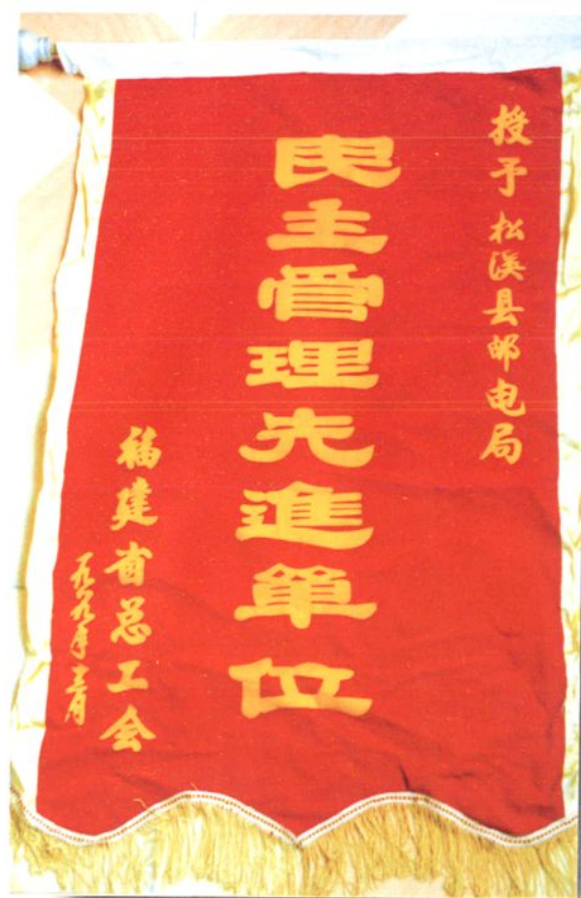 授予松溪县邮电局
民主管理先進单位
福建省总工会
一九八九年十二月